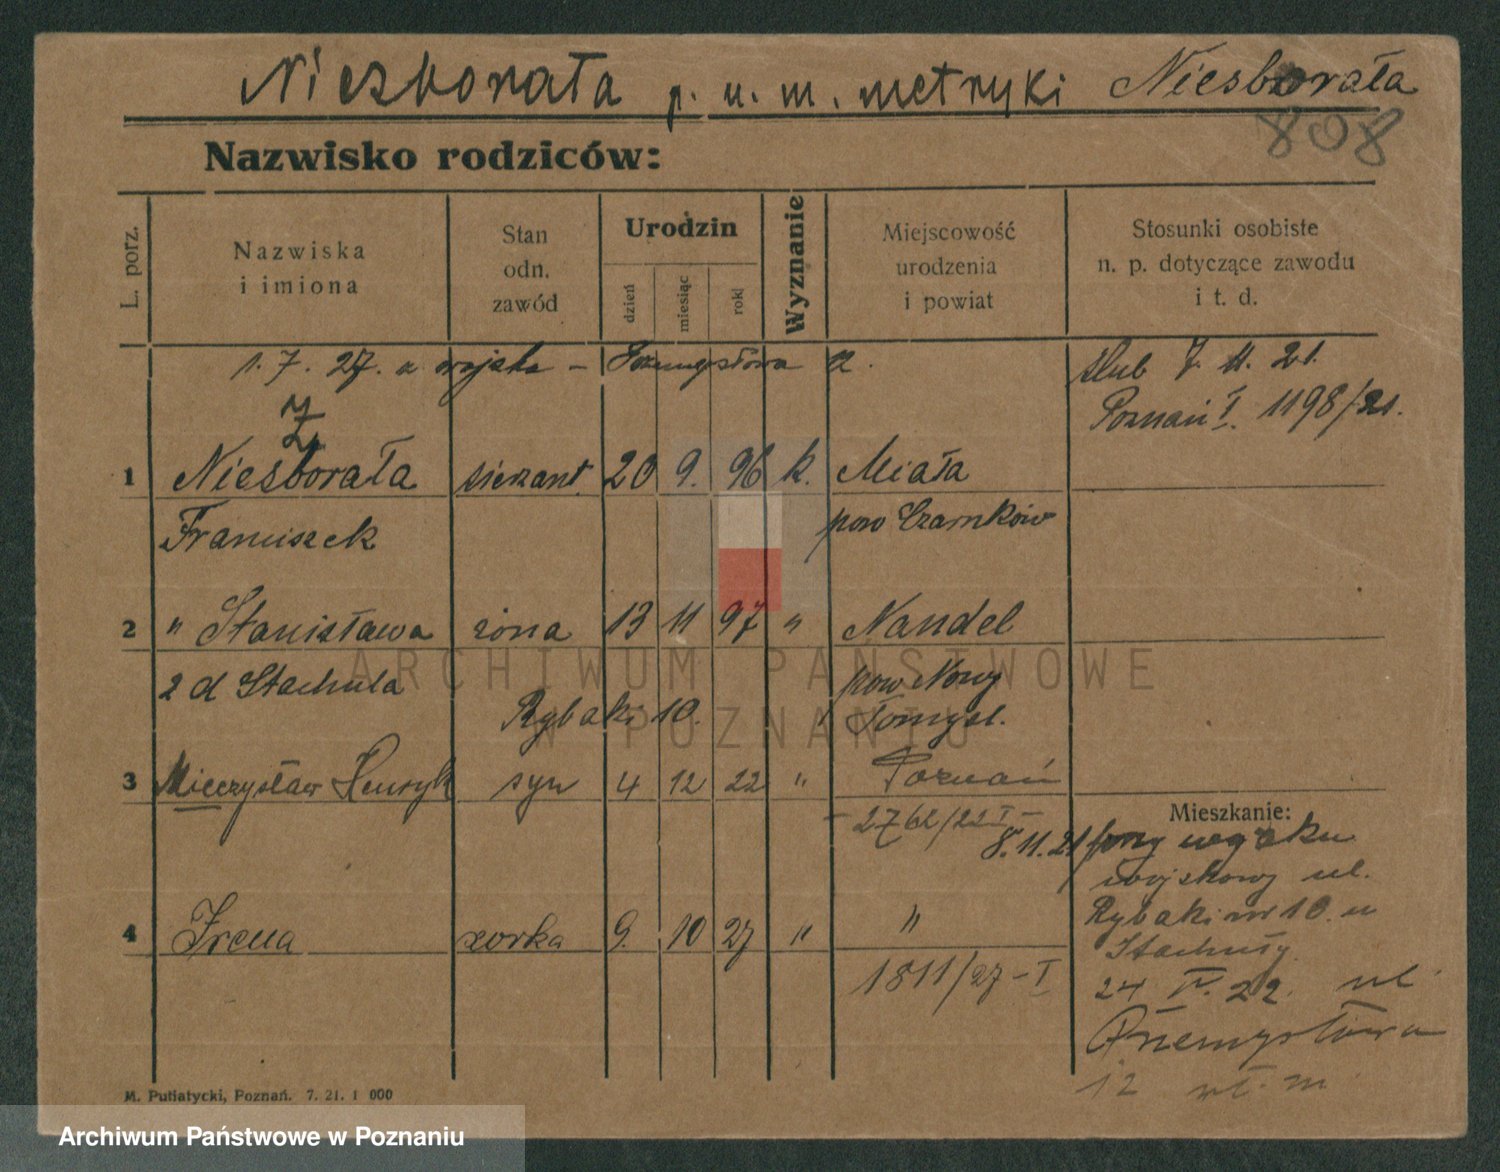 Niezborała p. u. m. metryki Niesborała
808
Nazwisko rodziców:
L. porz.
Nazwiska i imiona
Stan odn. zawód
Urodzin
dzień
miesiąc
rok
Wyznanie
Miejscowość urodzenia i powiat
Stosunki osobiste n. p. dotyczące zawodu i t. d.
1. 7. 27. z wojska – Przemysłowa 12.
ślub 7. 11. 21.
Poznań I. 1198/21.
Z
1 Niesborała sierżant 20 9. 96 k. Miała
Franciszek pow Czarnków
2 " Stanisława żona 13 11 97 " Nandel
z d Stachula pow Nowy
Rybaki 10. Tomyśl.
3 Mieczysław Henryk syn 4 12 22 " Poznań
- 2762/22 I -
Mieszkanie:
8. 11. 21
wojskowy ul.
Rybaki nr 10. u
Stachuły
4 Irena córka 9. 10 27 " "
1811/27 - I
24 IV. 22. ul.
Przemysłowa
12 wł. m.
M. Putiatycki, Poznań. 7. 21. 1 000
ARCHIWUM PAŃSTWOWE
W POZNANIU
Archiwum Państwowe w Poznaniu